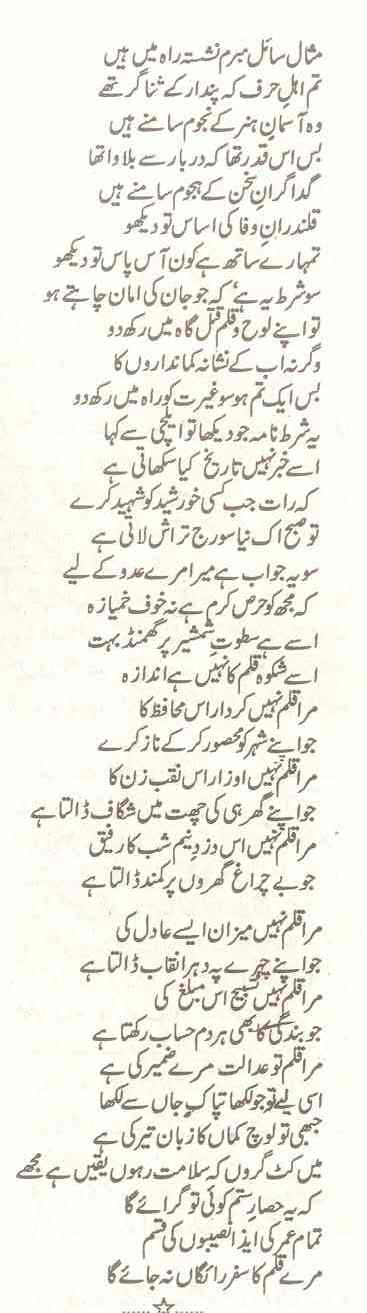 مثال سائل مبرم نشستہ راہ میں ہیں
تم اہلِ حرف کہ پندار کے ثنا گر تھے
وہ آسمانِ ہنر کے نجوم سامنے ہیں
بس اس قدر تھا کہ دربار سے بلاوا تھا
گداگرانِ سخن کے ہجوم سامنے ہیں
قلندرانِ وفا کی اساس تو دیکھو
تمہارے ساتھ ہے کون آس پاس تو دیکھو
سو شرط یہ ہے، کہ جو جان کی امان چاہتے ہو
تو اپنے لوح و قلم قتل گاہ میں رکھ دو
وگرنہ اب کے نشانہ کمانداروں کا
بس ایک تم ہو سو غیرت کو راہ میں رکھ دو
یہ شرط نامہ جو دیکھا تو ایلچی سے کہا
اسے خبر نہیں تاریخ کیا سکھاتی ہے
کہ رات جب کسی خورشید کو شہید کرے
تو صبح اک نیا سورج تراش لاتی ہے
سو یہ جواب ہے میرا مرے عدو کے لیے
کہ مجھ کو حرص کرم ہے نہ خوف خمیازہ
اسے ہے سطوتِ شمشیر پر گھمنڈ بہت
اسے شکوہ قلم کا نہیں ہے اندازہ
مرا قلم نہیں کردار اس محافظ کا
جو اپنے شہر کو محصور کر کے ناز کرے
مرا قلم نہیں اوزار اس نقب زن کا
جو اپنے گھر ہی کی چھت میں شگاف ڈالتا ہے
مرا قلم نہیں اس دزدِ نیم شب کا رفیق
جو بے چراغ گھروں پر کمند ڈالتا ہے
مرا قلم نہیں میزان ایسے عادل کی
جو اپنے چہرے پہ دہرا نقاب ڈالتا ہے
مرا قلم نہیں تسبیح اس مبلغ کی
جو بندگی کا بھی ہر دم حساب رکھتا ہے
مرا قلم تو عدالت مرے ضمیر کی ہے
اسی لیے تو جو لکھا تپاکِ جاں سے لکھا
جبھی تو لوچ کماں کا زبان تیر کی ہے
میں کٹ گروں کہ سلامت رہوں یقیں ہے مجھے
کہ یہ حصارِ ستم کوئی تو گرائے گا
تمام عمر کی ایذا نصیبوں کی قسم
مرے قلم کا سفر رائگاں نہ جائے گا